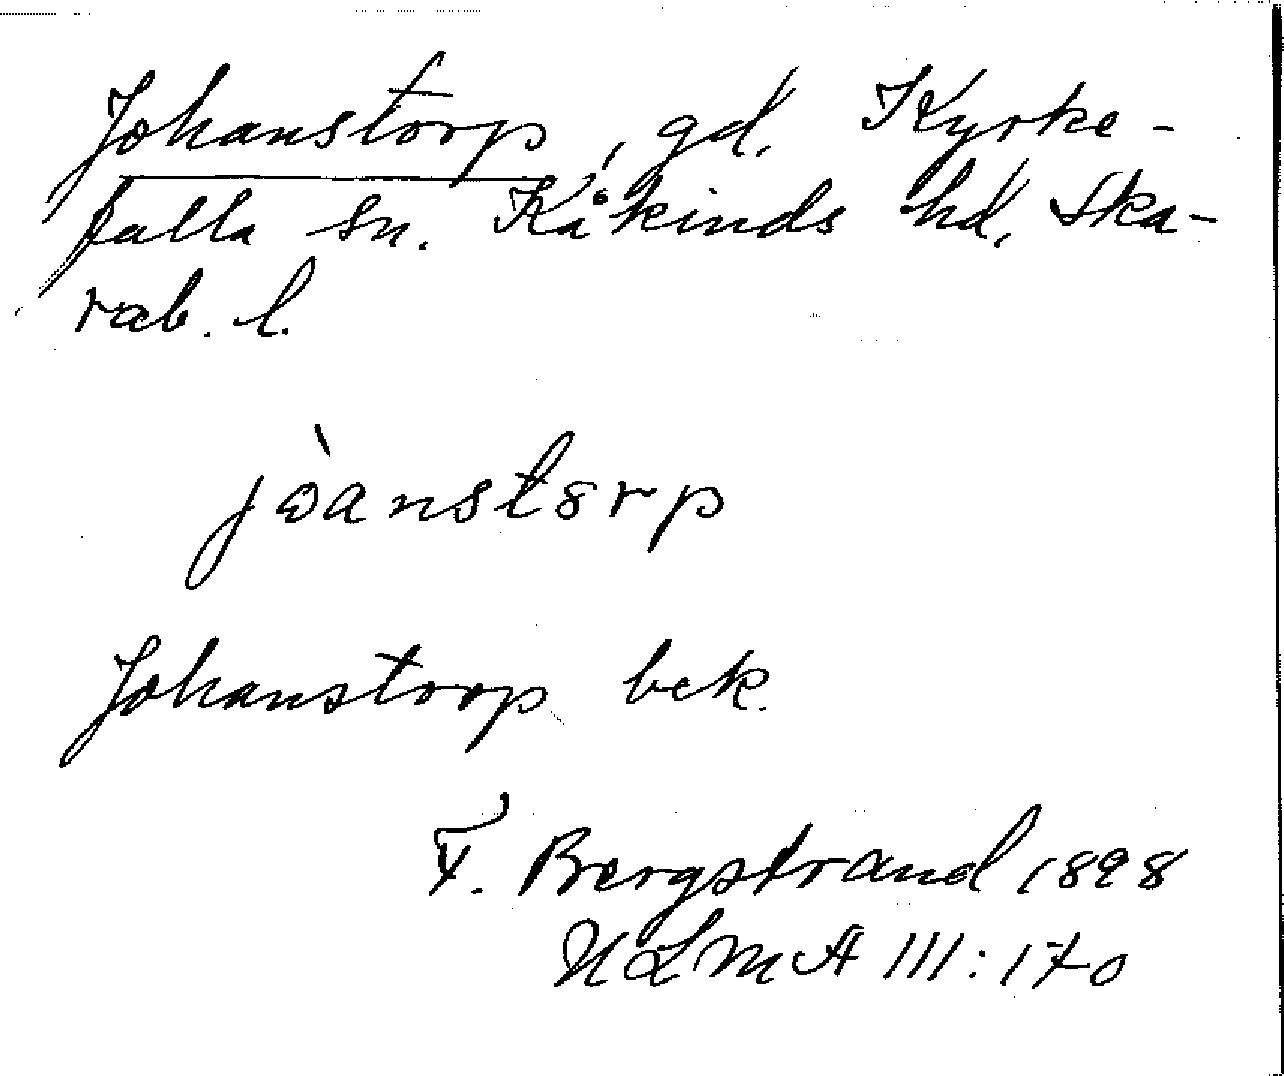 Johanstorp, gd. Kyrke-
falla sn. Kåkinds hd, Ska-
rab. l.
jòanstɤrp
Johanstorp bek.
F. Bergstrand 1898
ULMA 111:170